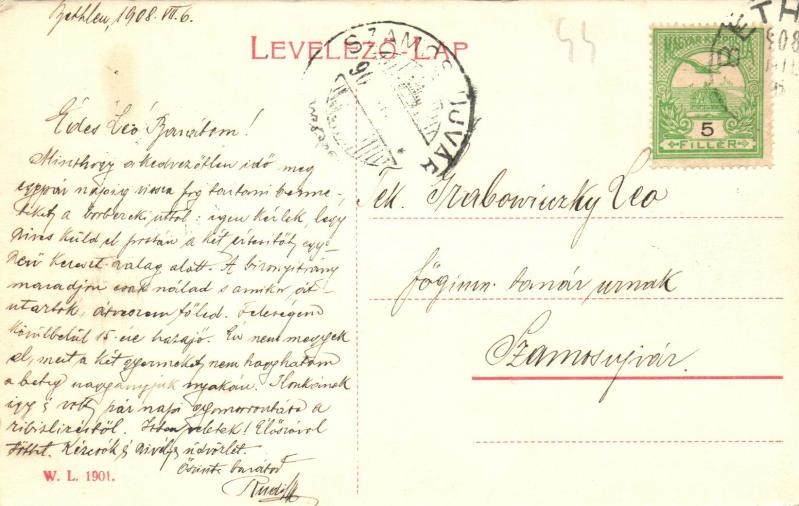 Bethlen, 1908. VII. 6.
LEVELEZŐ-LAP
44
SZAMOSUJVÁR
BETH
908
MAGYAR KIR. POSTA
5
FILLÉR
Édes Leó Barátom!
Minthogy a kedvezőtlen idő meg
egypár napig vissza fog tartani benne-
teket a borbereki uttól: igen kérlek légy
szives küld el postán a két értesitőt egy-
szerű kereszt-szalag alatt. A bizonyitvány
maradjon csak nálad s amikor át-
utaztok, átveszem tőled. Feleségem
körülbelül 15-ére hazajő. Én nem megyek
el, mert a két gyermeket nem hagyhatom
a beteg nagyanyjuk nyakán. Ilonkának
igy is volt pár napi gyomorrontása a
ribizlizéstől. Isten veletek! Élőszóval
többet. Kézcsók és szivélyes üdvözlet.
őszinte barátod
Rudi
Tek. Grabowiczky Leo
főgimn. tanár urnak
Szamosujvár.
W. L. 1901.